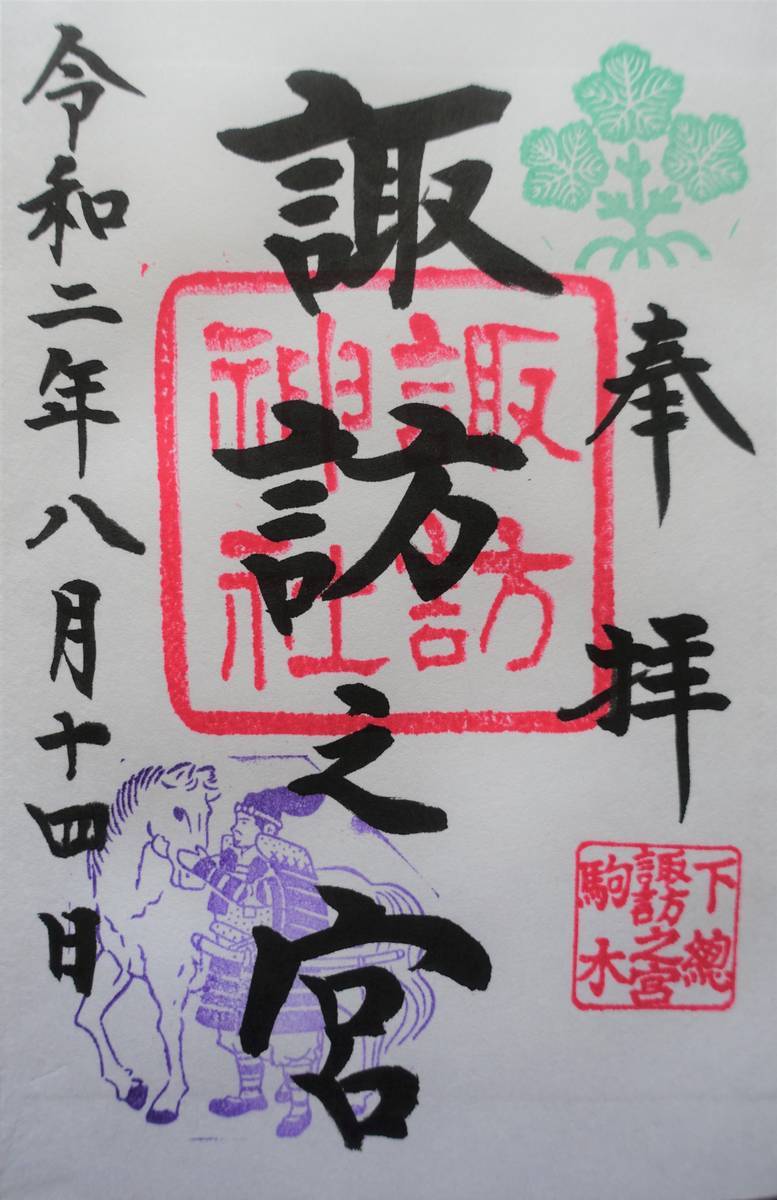 奉拝
下總
諏訪之宮
駒木
諏訪之宮
諏訪
神社
令和二年八月十四日